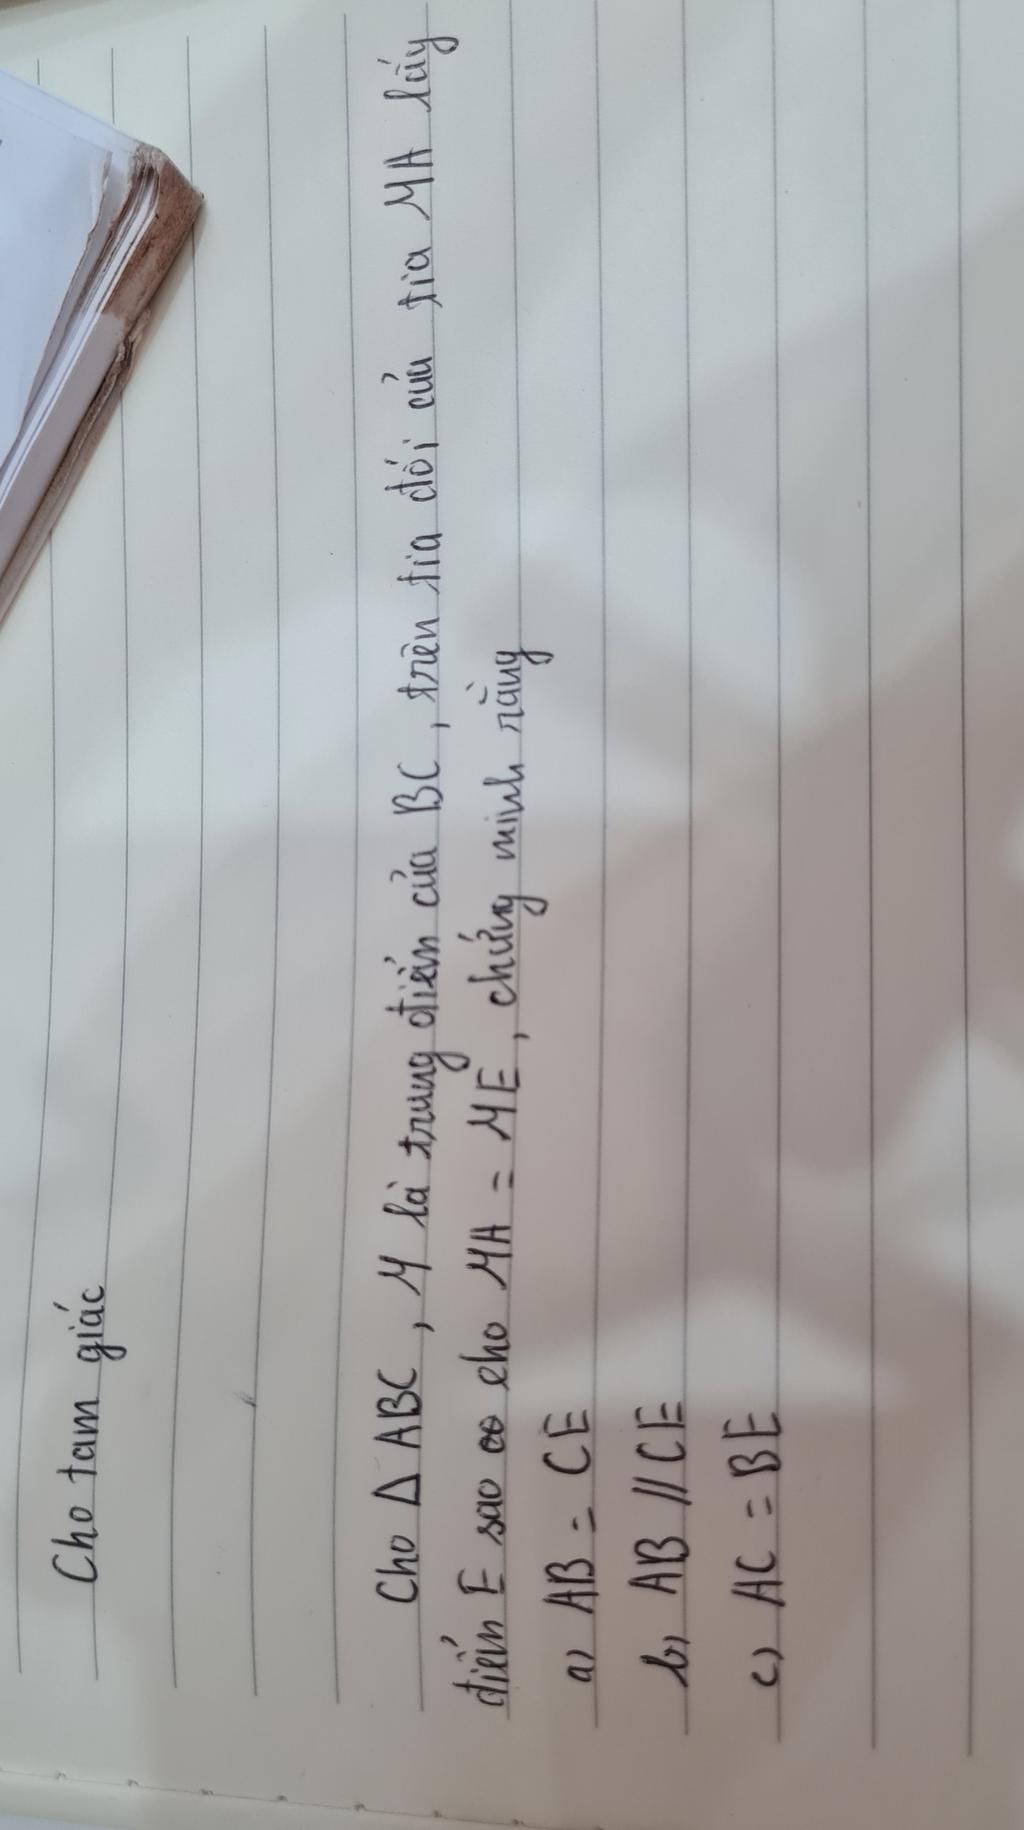 Cho tam giác
Cho Δ ABC, M là trung điểm của BC, trên tia đối của tia MA lấy
điểm E sao cho MA = ME, chứng minh rằng
a) AB = CE
b) AB // CE
c) AC = BE